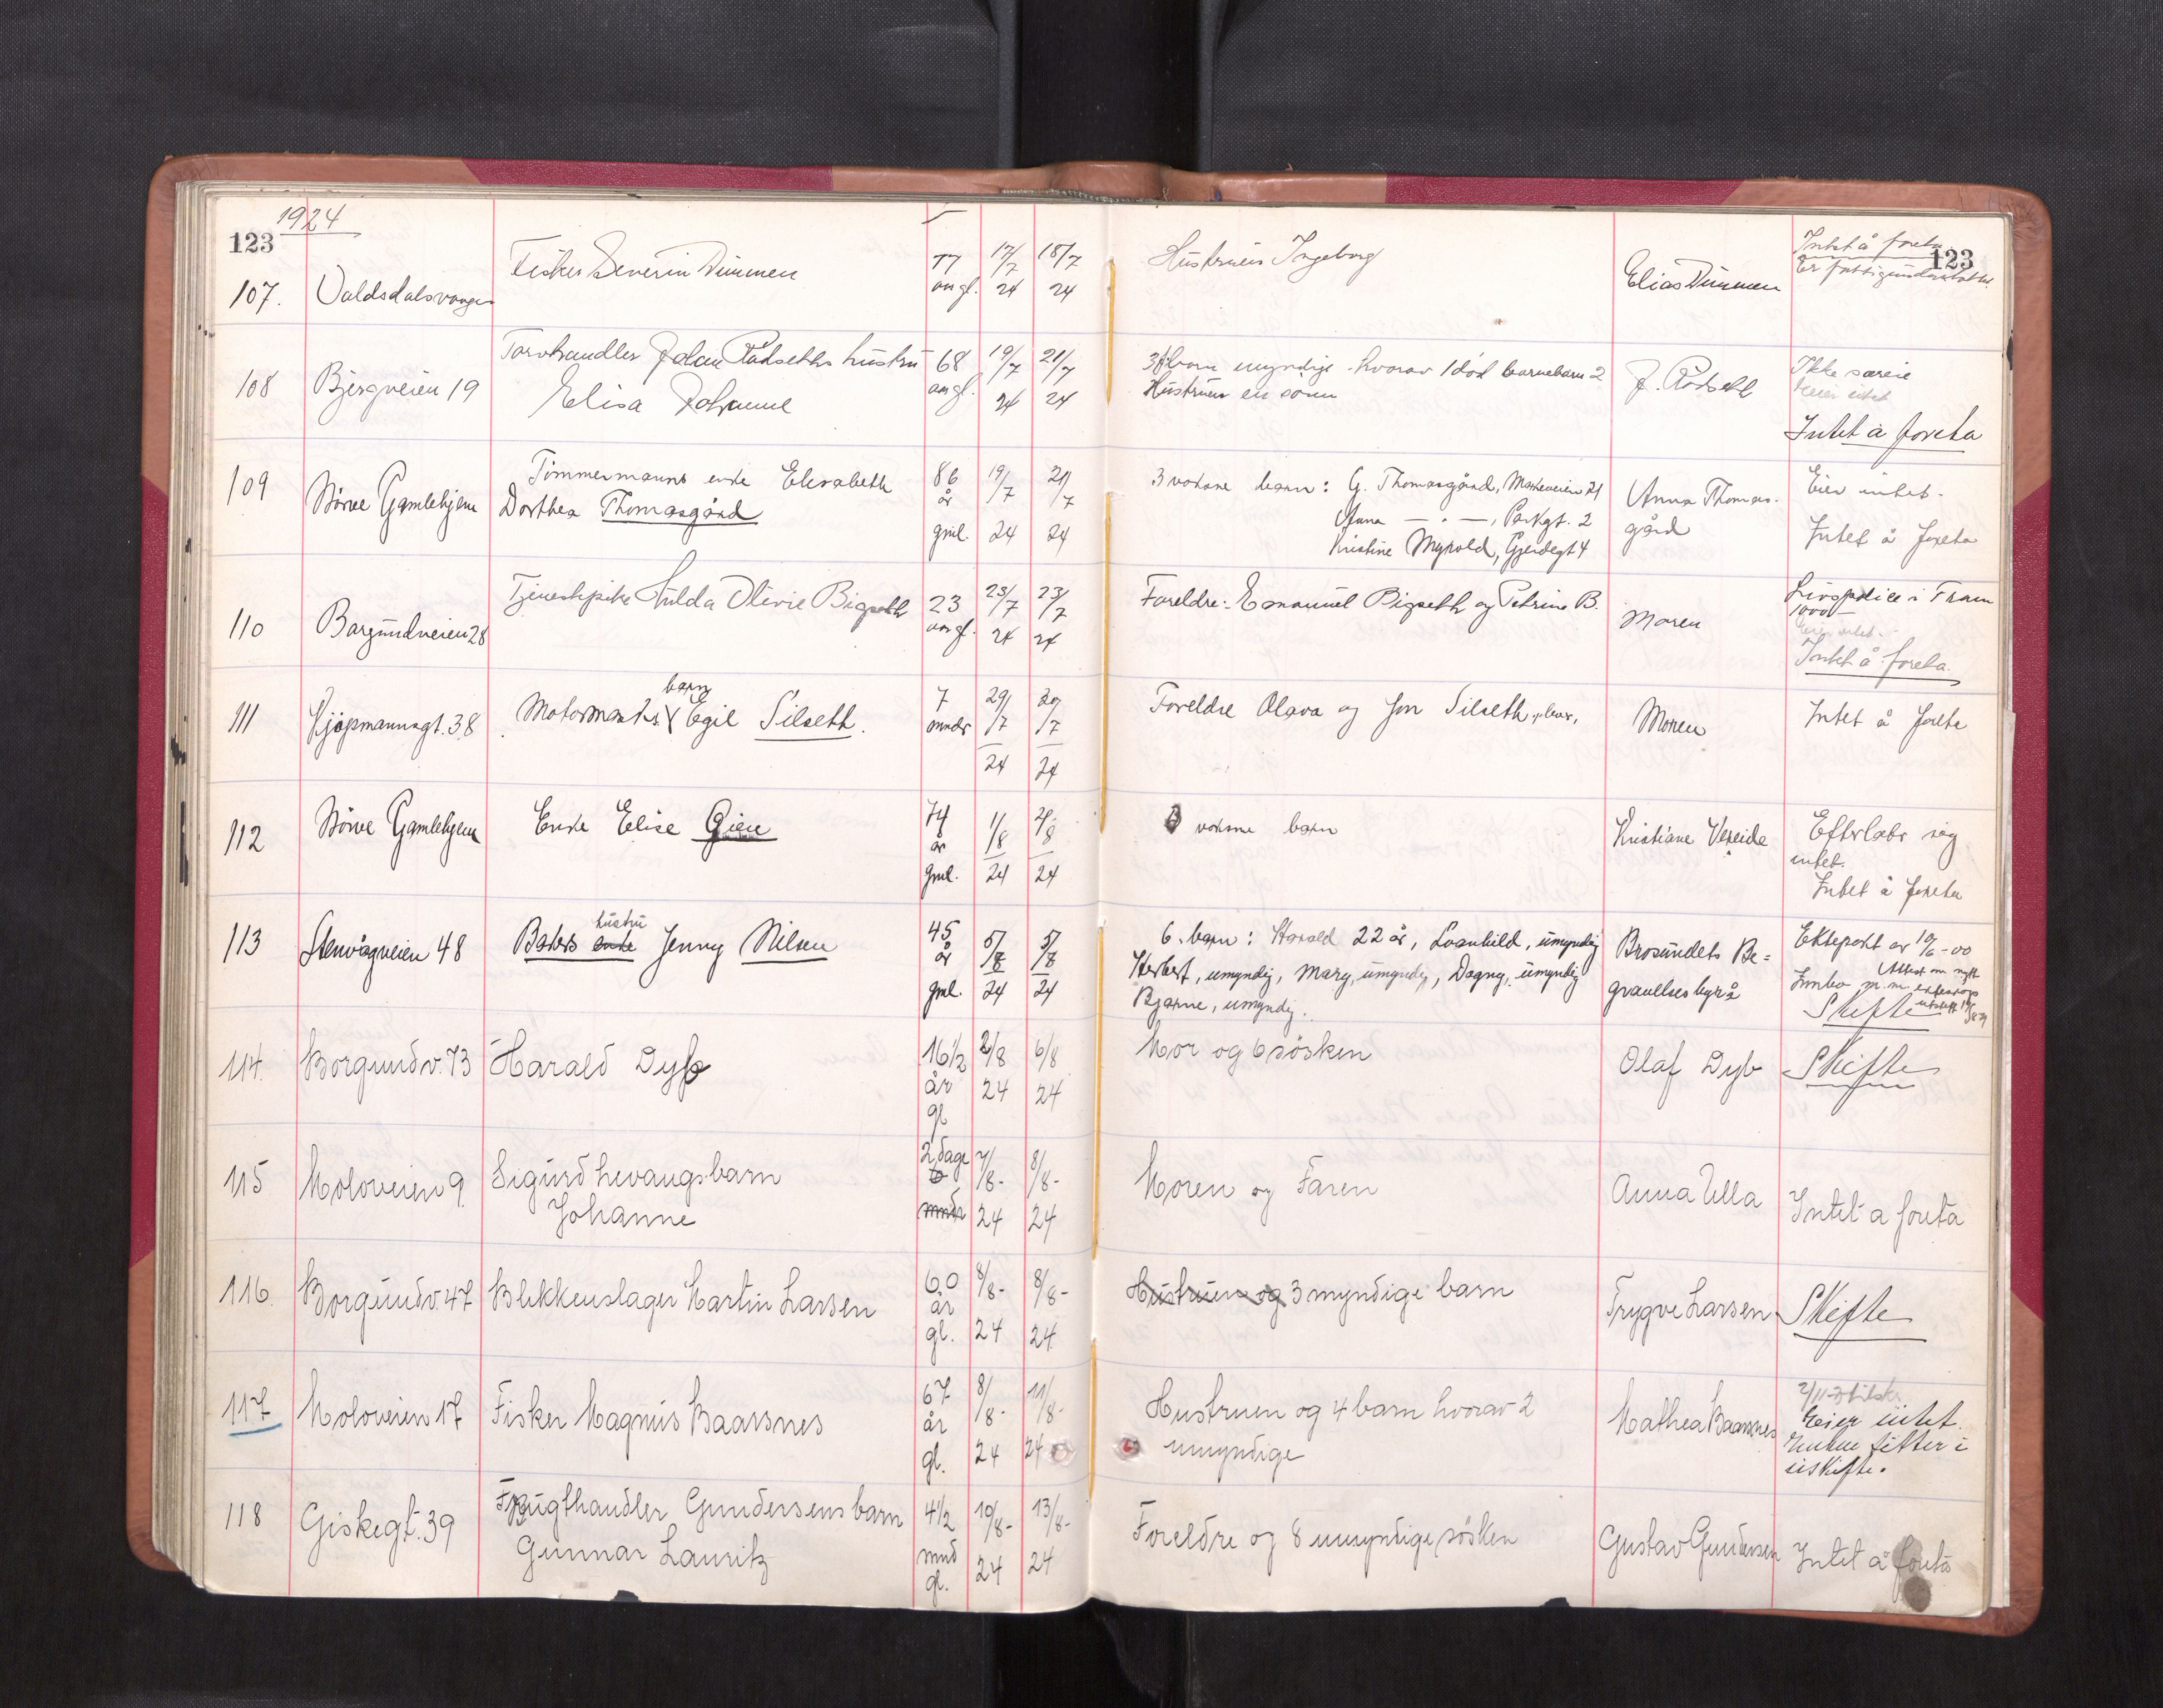 1924
123
123
107. Valdsdalsvangen Fisker Severin Dimmen 77 17/7 24 18/7 24 Hustruen Ingeborg Elias Dimmen Intet å foreta
Er fattigunderstøttet.
108 Bjergveien 19 Torvhandler Johan Rødseths hustru
Elisa Johanne 68 19/7 24 21/7 24 barn myndige hvorav 1 død barnebarn 2
J. Rødseth Ikke særeie
Eier intet
Intet å foreta
109 Nörve Gamlehjem Tömmermanns enke Elisabeth
Dorthea Thomasgård 86 år gml. 19/7 24 21/7 24 3 voksne barn: G. Thomasgård,
Anna — " —, Parkgt. 2
Kristine Myrold, Gjerdegt 4
Anna Thomas-
gård
Eier intet.
Intet å foreta
110 Borgundveien 28 Tjenestpike Hulda Olivie Bigseth 23 23/7 24 23/7 24 Foreldre: Emanuel Bigseth og Petrine B. Moren Livspolice i Fram
1000 —
Eier intet.
Intet å foreta.
111 Kjøpmannsgt. 38 Motormanns barn Egil Silseth. 7 mndr 29/7 24 30/7 24 Foreldre Olava og Jon Silseth, lever, Moren Intet å foreta
112 Nörve Gamlehjem Enke Elise Gjen 74 år gml. 1/8 24 2/8 24 voksne barn Kristiane Vereide Efterlater sig
intet.
Intet å foreta
113 Stenvågveien 48 Basers enke hustru Jenny Nilsen 45 år gml. 5/8 24 5/8 24 6 barn: Harald 22 år, umyndig
Herbert, umyndig, Mary, umyndig, Dagny, umyndig
Bjarne, umyndig.
Brosundets Be=
gravelsesbyrå
Ektepakt av 10/6 - 00
Attest om
Skifte
114. Borgundv. 73 Harald Dyb 16 1/2 år gl 2/8 24 6/8 24 Mor og 6 søsken Olaf Dyb Skifte
115 Moloveien 9. Sigurd Levangs barn
Johanne 2 dage mndr 7/8- 24 8/8- 24 Moren og Faren Anna Ulla Intet a foreta
116. Borgundv. 47 Blikkenslager Martin Larsen 60 år gl. 8/8- 24 8/8- 24 Hustruen og 3 myndige barn Trygve Larsen Skifte
117 Moloveien 17 Fisker Magnus Baarsnes 67 år gl. 8/8- 24 11/8- 24 Hustruen og 4 barn hvorav 2
umyndige
Mathea Baarsnes
Eier intet.
Enken sitter i
uskifte.
118 Giskegt. 39 Frugthandler Gundersens barn
Gunnar Lauritz 4 1/2 mnd gl. 10/8- 24 13/8- 24 Foreldre og 8 umyndige søsken Gustav Gundersen Intet å foreta